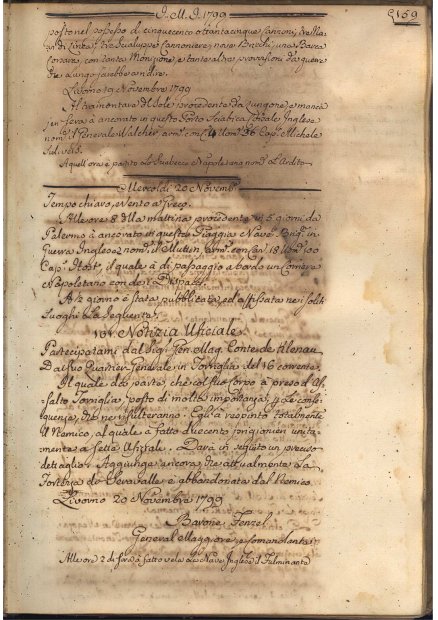 J. M. J. 1799
159
posto nel possesso di cinquecento ottantacinque Cannoni, tre
di, tre Scialuppe Cannoniere, nove una Barca
con tanta Munizione, e tante altre provvisioni da guerra
che a lungo sarebbe a ridire.
Livorno 19 Novembre 1799
Il tramontar del Sole procedente da e manca
à ancorato in questo Porto Inglese
nom.º il Generale arm.º con Cap.º Michele
A quell'ora è partito lo Napoletano nom.º L'Ardito
Mercoldi 20 Novemb.e
Tempo chiaro, e vento a Greco.
Alle ore 8 della mattina procedente in 5 giorni da
Palermo à ancorato in questa Piaggia Nave
Guerra Inglese nom.º arm.º con Can. 18 Uom.
Cap.º Host, il quale à di passaggio a bordo un Corriere
Napoletano con dei Dispacci.
A 1/2 giorno è stata pubblicata, ed affissata nei soliti
Luoghi La Seguente.
Notizia Uficiale
Partecipatami dal Sig.r Gen. Mag. Conte de Klenau
Dal suo Quartier Generale in Torriglia del 16 corrente.
Il quale dà parte, che col suo Corpo à preso d'As-
salto Torriglia, posto di molta importanza, per le conse-
guenze, che ne risulteranno. Egli à respinto totalmente
il Nemico, al quale à fatto duecento prigionieri unita-
mente a sette Ufiziali. Darà in seguito un preciso
dettaglio. Aggiunge ancora che attualmente la
Fortezza di Seravalle è abbandonata dal Nemico.
Livorno 20 Novembre 1799
Barone Fenzel
General Maggiore e Comandante
Alle ore 2 di sera à fatto vela la Nave Inglese il Fulminante